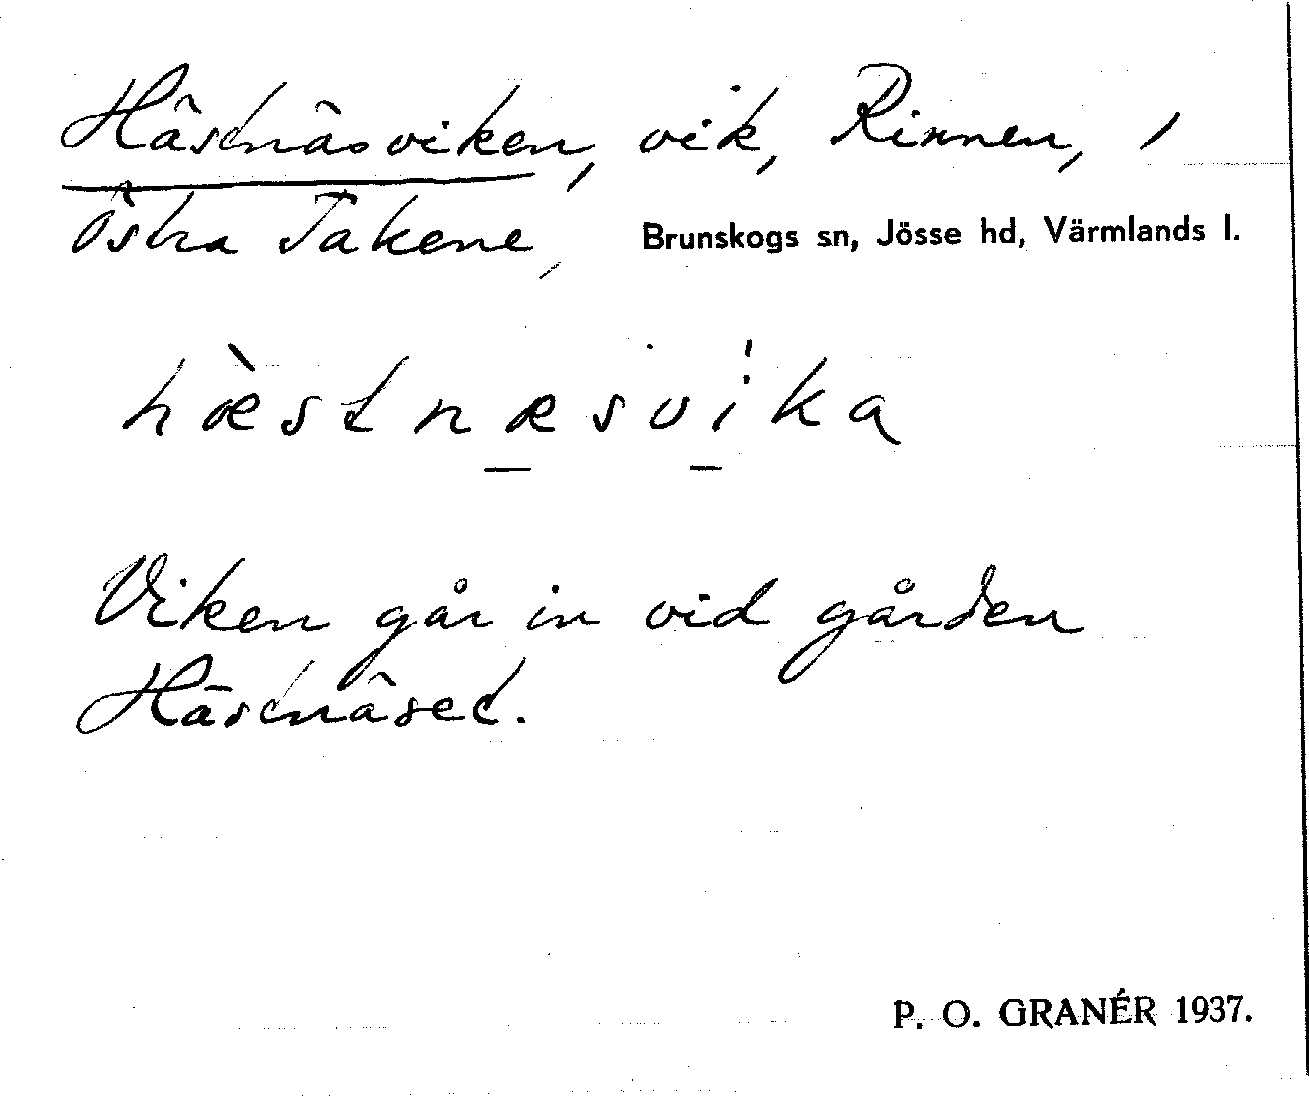 Hästnäsviken, vik, Rinnen, i
Östra Takene, Brunskogs sn, Jösse hd, Värmlands l.
hæ̀stnæ̱svi̱ka
Viken går in vid gården
Hästnäset.
P. O. GRANÉR 1937.